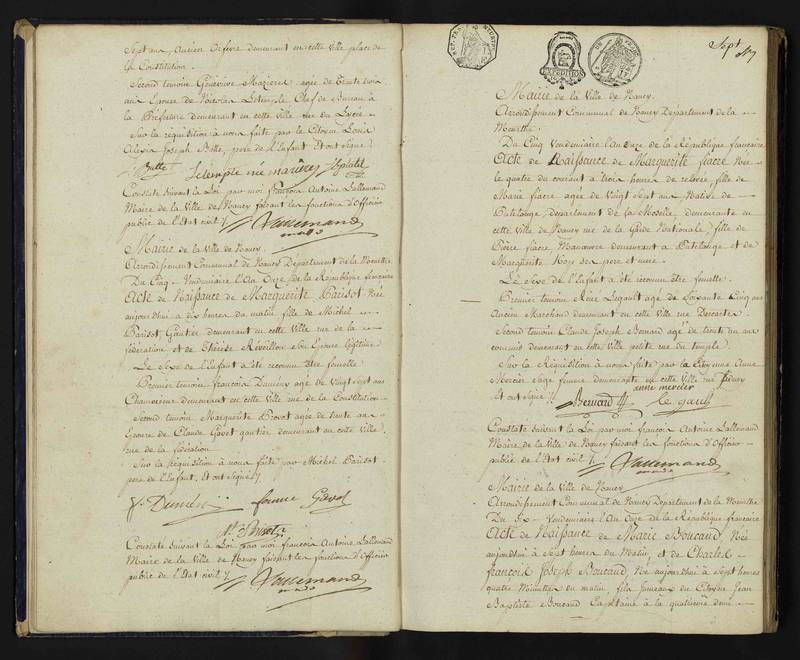 Sept ans, Ancien Orfevre demeurant en cette Ville place de
la Constitution.
Second temoin Genevieve Mazieres agée de Trente trois
ans Epouse de Nicolas Letemple Chef de Bureau à
la Préfecture demeurant en cette Ville rue du Lycée.
Sur la réquisition à nous faite par le Citoyen Louis
Alexis Joseph Butte, pere de l'Enfant Et ont signé
Butte Letemple née mazieres
Constaté suivant la Loi par moi François Antoine Lallemand
Maire de la Ville de Nancy faisant les fonctions d'Officier
public de l'Etat civil ⁒ Lallemand
Mairie de la Ville de Nancy.
Arrondissement Communal de Nancy Département de la Meurthe
Du Cinq Vendemiaire l'An Onze de la République francaise
Acte de Naissance de Marguerite Parisot Née
aujourdhui a dix heures du matin, fille de Michel
Parisot Gantier demeurant en cette Ville rue de la
fédération et de Thérèse Réveillon Son Epouse légitime
Le Sexe de l'Enfant a été reconnu être femelle
Premier temoin francois agé de Vingt Sept ans
Chamoiseur demeurant en cette Ville rue de la Constitution
Second temoin Marguerite agée de trente ans
Epouse de Claude Gavot gantier demeurant en cette Ville
rue de la fédération
Sur la Réquisition à nous faite par Michel Parisot
pere de l'Enfant, Et ont signé ⁒
M. Parisot
Constaté suivant la Loi par moi francois Antoine Lallemand
Maire de la Ville de Nancy faisant les fonctions d'Officier
public de l'Etat civil ⁒ Lallemand
Sept
EXPÉDITION
Mairie de la Ville de Nancy.
Arrondissement Communal de Nancy Département de la
Meurthe.
Du Cinq Vendemiaire l'An Onze de la République francaise
Acte de Naissance de Marguerite fiacre Née
le quatre du courant a trois heures de relevée, fille de
Marie fiacre agée de Vingt Sept ans Native de
Putelange, departement de la Moselle, demeurante en
cette Ville de Nancy rue de la Garde Nationale, fille de
Pierre fiacre Manoeuvre demeurant a Putelange et de
Marguerite ses pere et mere.
Le Sexe de l'Enfant a été reconnu être femelle.
Premier temoin Legault agé de Soixante Cinq ans
Ancien Marchand demeurant en cette Ville rue Descartes.
Second temoin Claude Joseph Bernard agé de trente un ans
commis demeurant en cette Ville petite rue du temple.
Sur la Réquisition à nous faite par la Citoyenne Anne
Mercier Sage femme demeurante en cette Ville rue
Et ont signé ⁒ anne mercier
Bernard le gault
Constaté suivant la Loi par moi francois Antoine Lallemand
Maire de la Ville de Nancy faisant les fonctions d'Officier
public de l'Etat civil ⁒ Lallemand
Mairie de la Ville de Nancy
Arrondissement Communal de Nancy Département de la Meurthe
Du Six Vendemiaire l'An Onze de la République francaise
Acte de Naissance de Marie Boucaud, Née
aujourdhui à Sept heures du Matin, et de Charles
francois Joseph Boucaud, Né aujourdhui à Sept heures
quatre Minuttes du matin, fils jumeaux du Citoyen Jean
Baptiste Boucaud Capitaine à la quatrieme demi